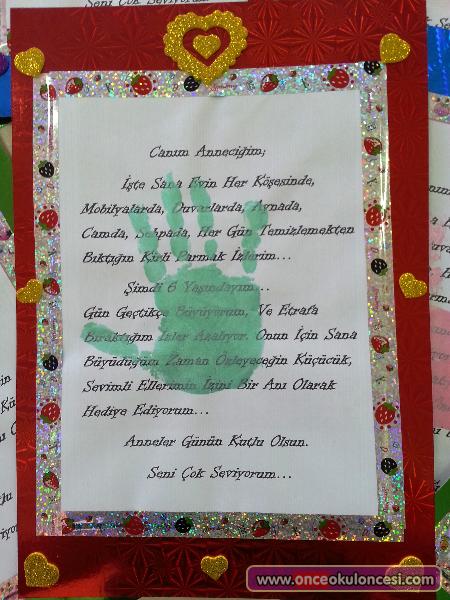 Seni Çok Seviyorum...
Canım Anneciğim;
İşte Sana Evin Her Köşesinde,
Mobilyalarda, Duvarlarda, Aynada,
Camda, Sehpada, Her Gün Temizlemekten
Bıktığın Kirli Parmak İzlerim...
Şimdi 6 Yaşındayım...
Gün Geçtikçe Büyüyorum, Ve Etrafa
Bıraktığım İzler Azalıyor. Onun İçin Sana
Büyüdüğüm Zaman Özleyeceğin Küçücük,
Sevimli Ellerimin İzini Bir Anı Olarak
Hediye Ediyorum...
Anneler Günün Kutlu Olsun.
Seni Çok Seviyorum...
www.onceokuloncesi.com